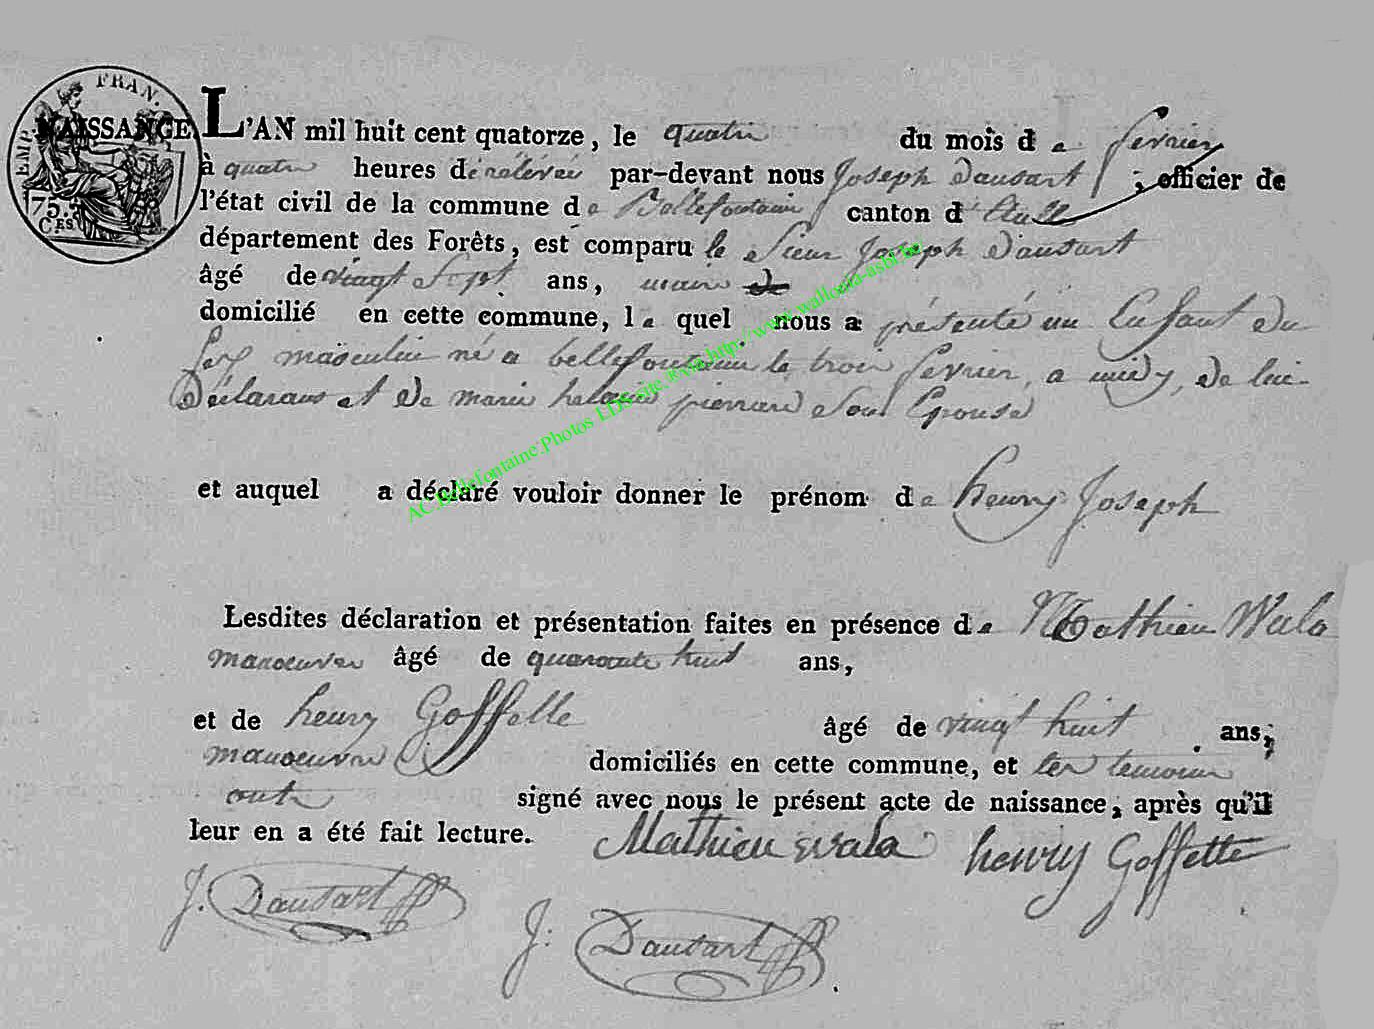 EMP. FRAN.
75. CES.
NAISSANCE. L'AN mil huit cent quatorze, le quatre du mois de fevrier
à quatre heures de relévée par-devant nous Joseph Dausart, officier de
l'état civil de la commune de Bellefontaine canton d'Etalle
département des Forêts, est comparu le Sieur Joseph Dausart
âgé de vingt Sept ans, maire
domicilié en cette commune, le quel nous a présenté un Enfant du
sexe masculin né a bellefontaine le trois fevrier, a midy, de lui
Déclarant et De marie pierrard Son Epouse
et auquel a déclaré vouloir donner le prénom de henry Joseph
Lesdites déclaration et présentation faites en présence de Mathieu Wala
manoeuvre âgé de quarante huit ans,
et de henry Goffette âgé de vingt huit ans,
manoeuvre domiciliés en cette commune, et les temoins
ont signé avec nous le présent acte de naissance, après qu'il
leur en a été fait lecture. Mathieu wala henry Goffette
J. Dausart
J. Dausart
AC.Bellefontaine.Photos LDS-site. http://www.wallonia-asbl.be/